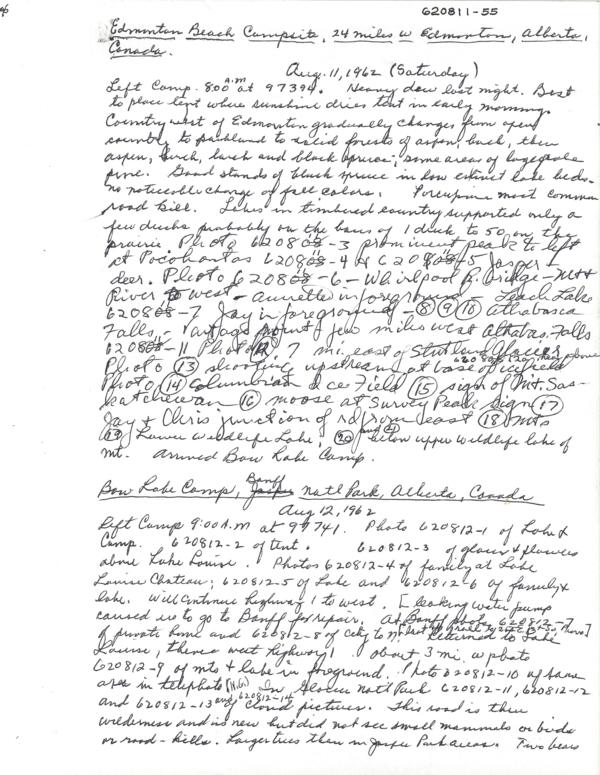 620811-55
Edmonton Beach Campsite, 24 miles w Edmonton, Alberta,
Canada.
Aug. 11, 1962 (Saturday)
Left Camp 8:00 a.m. at 97394. Heavy dew last night. Best
to place tent where sunshine dries tent in early morning.
Country west of Edmonton gradually changes from open
country to parkland to solid forests of aspen, birch, then
aspen, birch, larch and black spruce; some areas of lodgepole
pine. Good stands of black spruce in low extinct lake beds.
no noticeable change of fall colors. Porcupine most common
road kill. Lakes in timbered country supported only a
few ducks probably on the basis of 1 duck to 50 on the
prairie. Photo 620811-3 prominent peak to left
at Pocohantas 620811-4 & 620811-5 Jasper -
deer. Photo 620811-6 - Whirlpool R. bridge - Mt &
River to west - Annette in foreground - Leach Lake
620811-7 Jay in foreground - (8) (9) (10) Athabasca
Falls, - vantage point few miles west Athabas. Falls
620811-11 Photo 12, 7 mi. east of Glacier
Photo (13) shooting upstream at base of icefield
Photo (14) Columbian Ice Field (15) sign of Mt. Sas-
katchewan (16) moose at Survey Peak sign (17)
Jay & Chris junction of rd from east (18) Mts
(19) Lower Wildlife Lake, (20) below upper wildlife lake of
mt. Arrived Bow Lake Camp.
Bow Lake Camp, Banff Natl Park, Alberta, Canada
Aug 12, 1962
Left Camp 9:00 A.M at 97741. Photo 620812-1 of Lake &
Camp. 620812-2 of tent. 620812-3 of glacier & flowers
above Lake Louise. Photos 620812-4 of family at Lake
Louise Chateau; 620812-5 of Lake and 620812-6 of family &
lake. Will continue highway 1 to west. [leaking water pump
caused us to go to Banff for repair. At Banff photo 620812-7
of private home and 620812-8 of city to N. Returned to Lake
Louise, thence west highway 1 about 3 mi. w photo
620812-9 of mts & lake in foreground. Photo 620812-10 of same
area in telephoto [N.G.] In Glacier Natl Park 620812-11, 620812-12
and 620812-13 and 620812-14 of cloud pictures. This road is thru
wilderness and is new but did not see small mammals or birds
or road-kills. Larger trees than in Jasper Park areas. Two bears